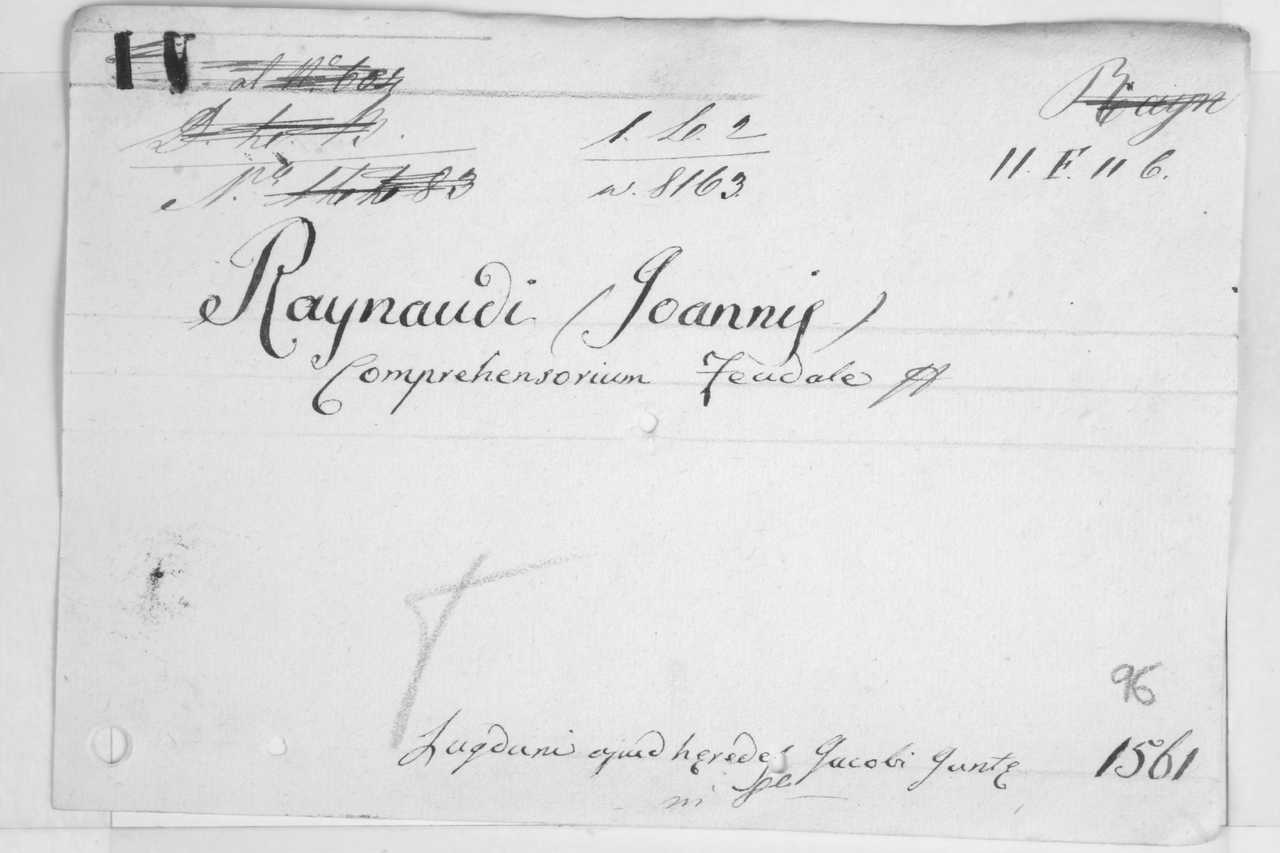 IV al N.º
N.ro 83
1. Lo. 2
w. 8163.
11. F. 11 6.
Raynaudi (Joannis)
Comprehensorium Feudale
96
Lugduni apud hęredes Jacobi Juntę 1561
in